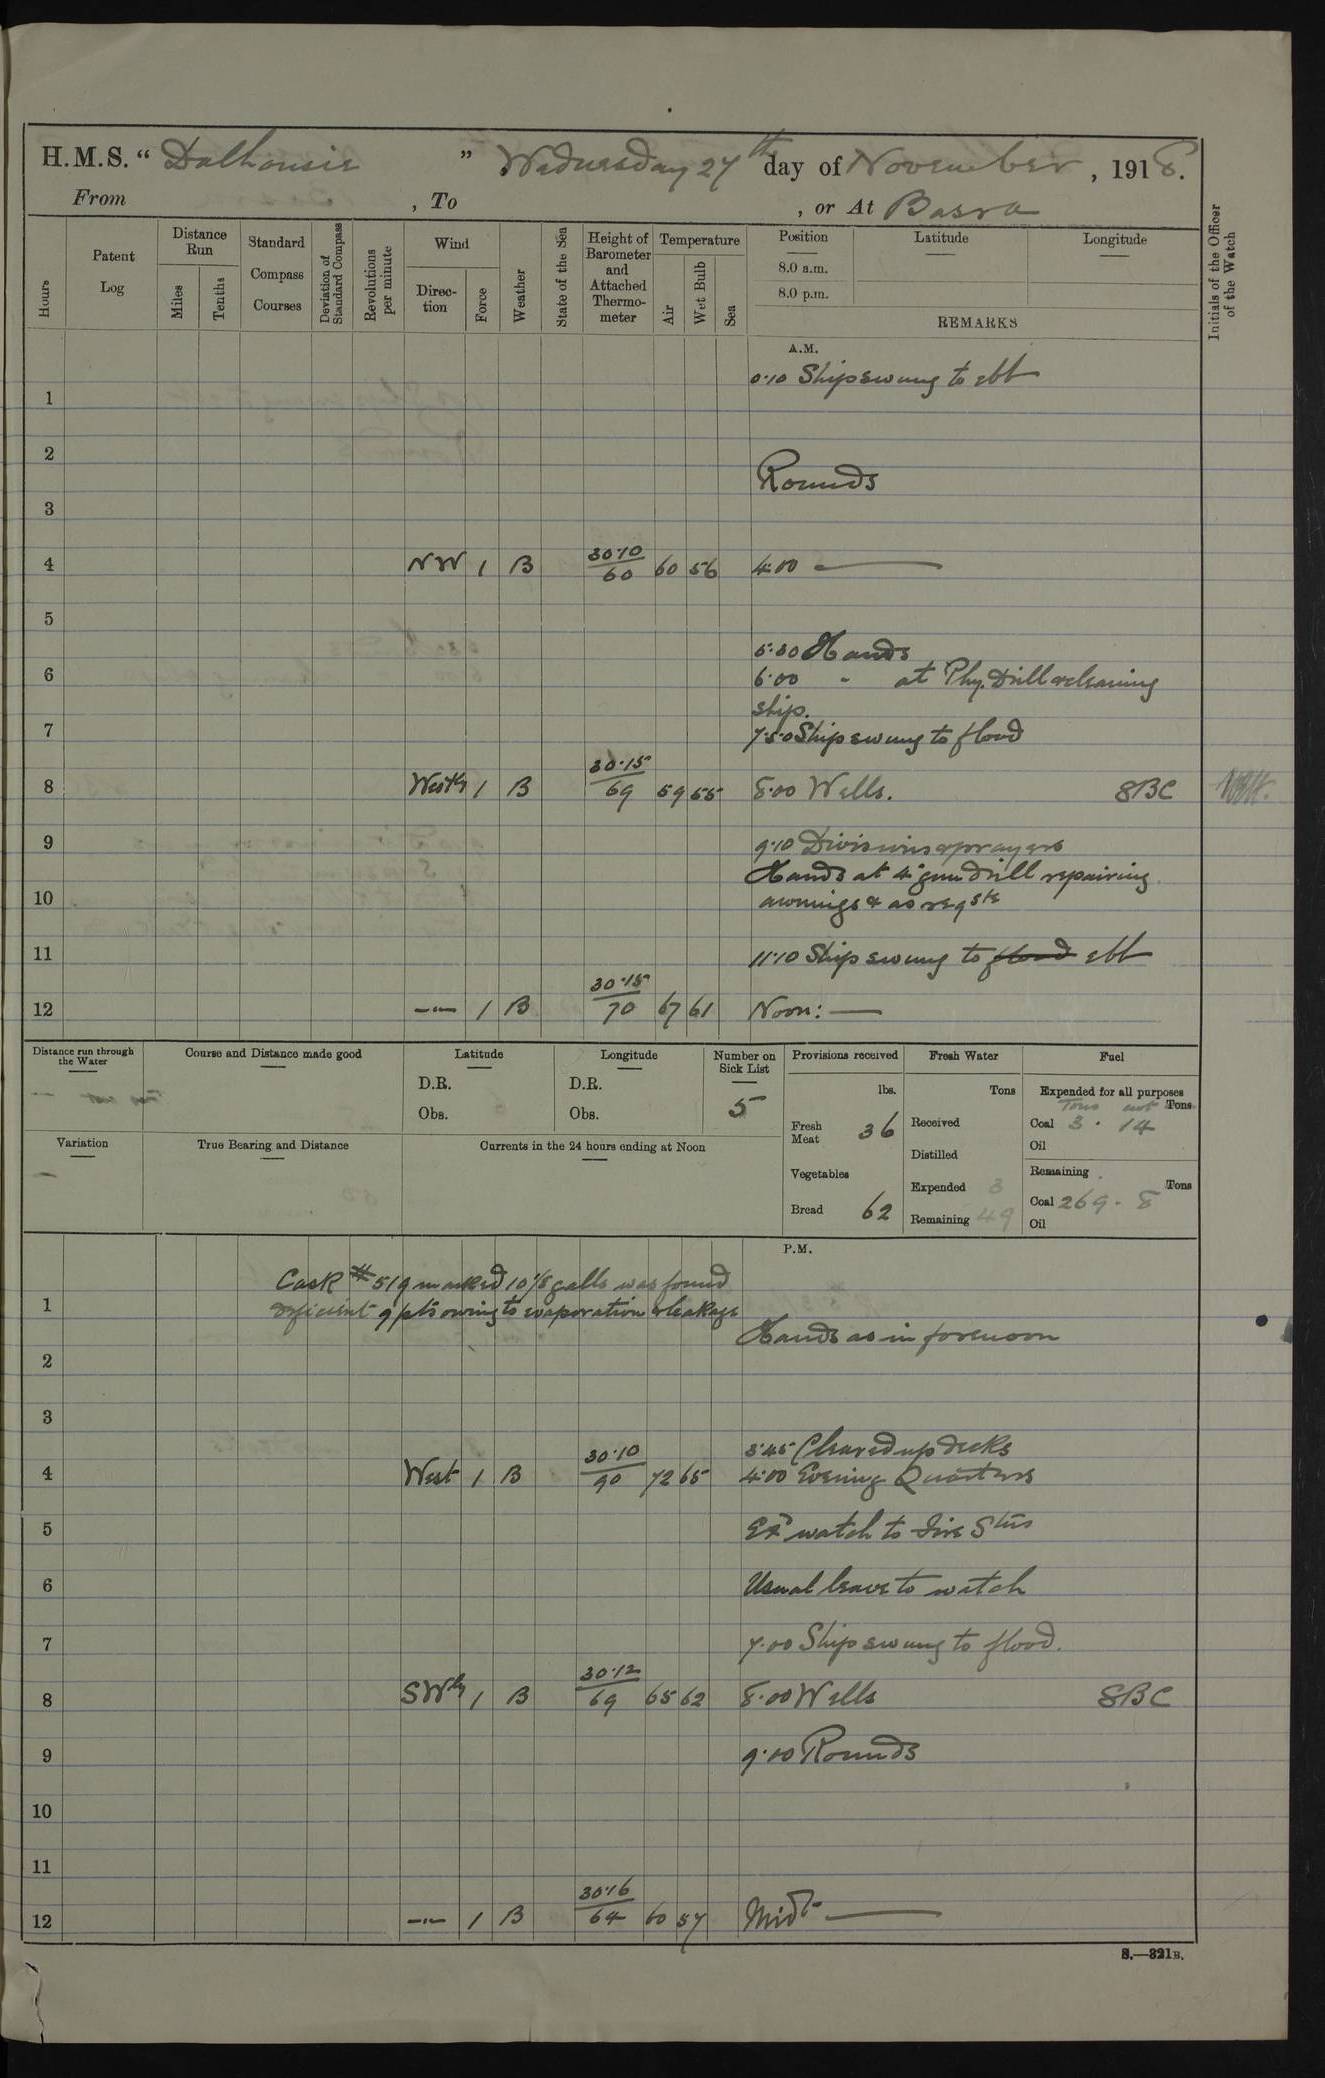 H.M.S. “ Dalhousie ” Wednesday 27th day of November, 1918.
From , To , or At Basra
Hours
Patent Log
Distance Run
Miles
Tenths
Standard Compass Courses
Deviation of Standard Compass
Revolutions per minute
Wind
Direction
Force
Weather
State of the Sea
Height of Barometer and Attached Thermometer
Temperature
Air
Wet Bulb
Sea
Position
8.0 a.m.
8.0 p.m.
Latitude
Longitude
REMARKS
Initials of the Officer of the Watch
A.M.
0.10 Ship swung to ebb
1
2
Rounds
3
4 NW 1 B 30.10/60 60 56 4.00
5
5.30 Hands
6
6.00 " at Phy. Drill & cleaning
ship.
7
7.50 Ship swung to flood
8 Westly 1 B 30.15/69 59 55 8.00 Wells. 8BC
9
9.10 Divisions & prayers
Hands at 4" gun drill repairing
10
awnings & as reqste
11
11.10 Ship swung to flood ebb
12 -"- 1 B 30.15/70 67 61 Noon:
Distance run through the Water
Course and Distance made good
Latitude
D.R.
Obs.
Longitude
D.R.
Obs.
Number on Sick List
5
Provisions received
lbs.
Fresh Meat 36
Vegetables
Bread 62
Fresh Water
Tons
Received
Distilled
Expended 3
Remaining 49
Fuel
Expended for all purposes
Tons cwt Tons
Coal 3 . 14
Oil
Remaining
Tons
Coal 269 . 8
Oil
Variation
True Bearing and Distance
Currents in the 24 hours ending at Noon
P.M.
Cask # 519 marked 10 galls was found
deficient 9 pts owing to evaporation & leakage
1
Hands as in forenoon
2
3
3.45 Cleared up decks
4 West 1 B 30.10/90 72 65 4.00 Evening Quarters
5
Ex watch to Fire Stns
6
Usual leave to watch
7
7.00 Ship swung to flood.
8 SWly 1 B 30.12/69 65 62 8.00 Wells 8BC
9
9.00 Rounds
10
11
12 -"- 1 B 30.16/64 60 57 Midt
S.—321B.